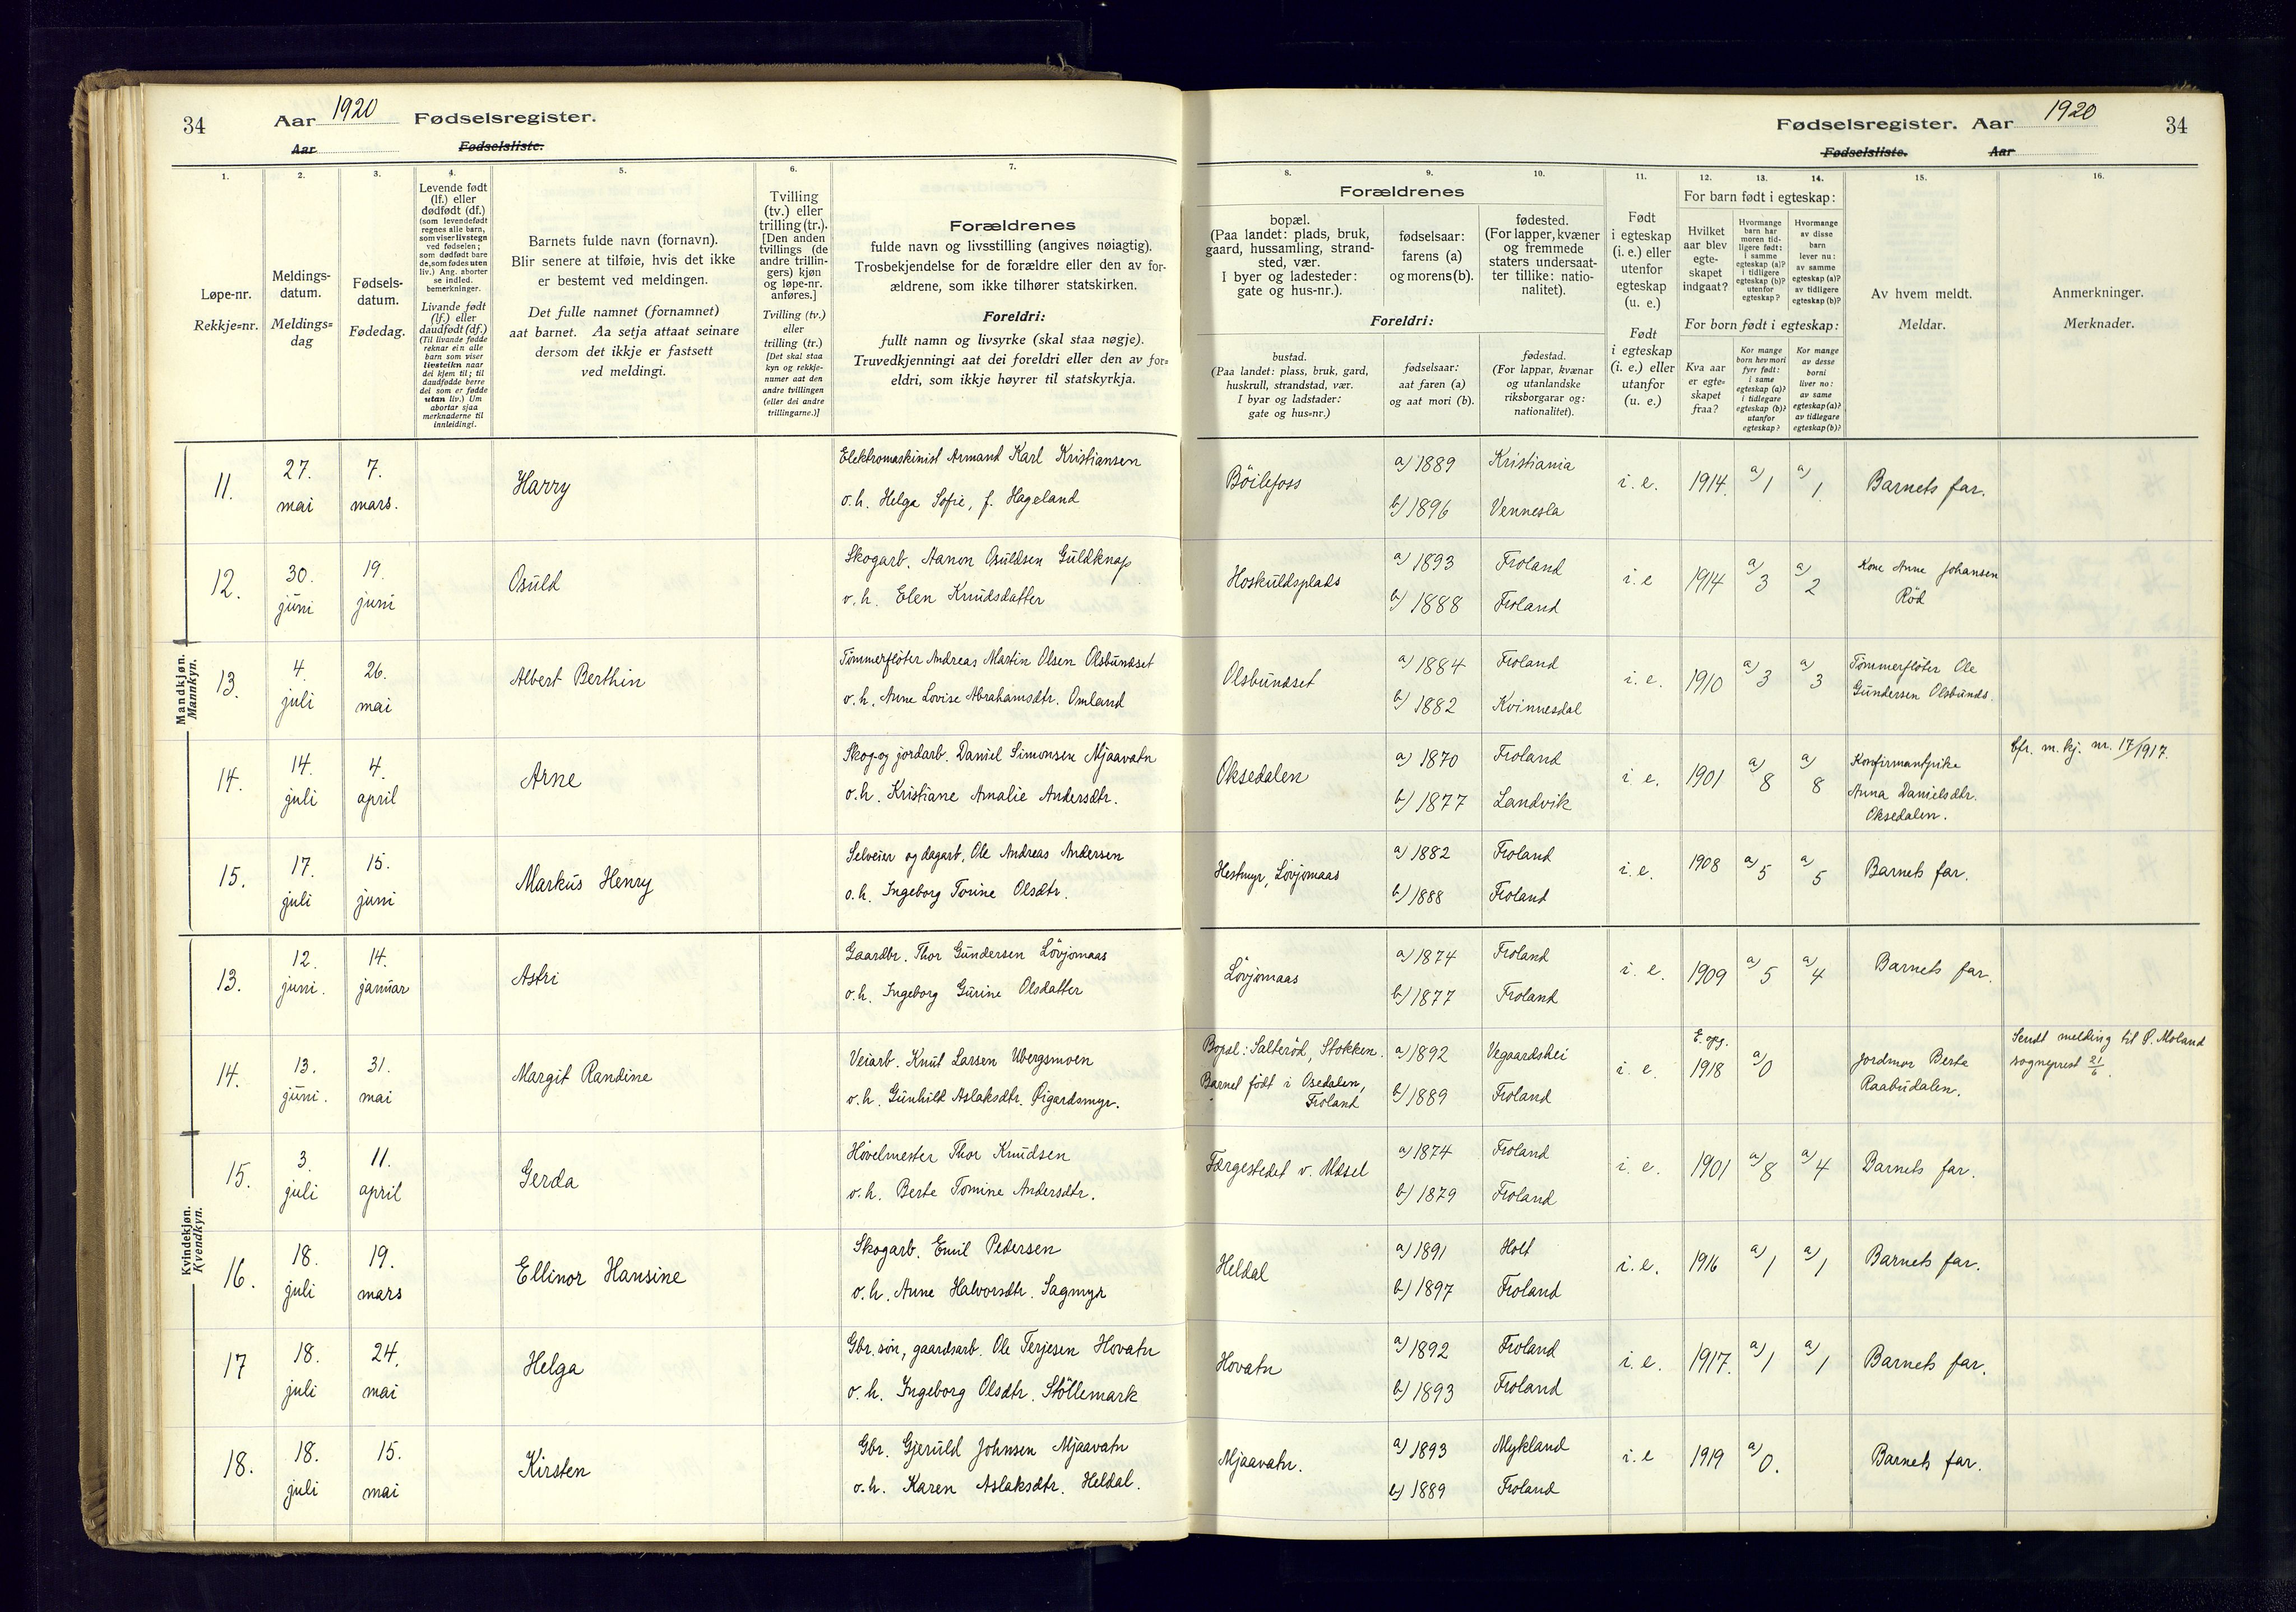 34
Aar 1920 Fødselsregister.
Aar Fødselsliste.
1.
2.
3.
4.
5.
6.
7.
Løpe-nr.
Rekkje=nr.
Meldings-
datum.
Meldings=
dag
Fødsels-
datum.
Fødedag.
Levende født
(lf.) eller
dødfødt (df.)
(som levendefødt
regnes alle barn,
som viser livstegn
ved fødselen;
som dødfødt bare
de, som fødes uten
liv.) Ang. aborter
se indled.
bemerkninger.
Livande født
(lf.) eller
daudfødt (df.)
(Til livande fødde
reknar ein alle
barn som viser
livsteikn naar
dei kjem til; til
daudfødde berre
dei som er fødde
utan liv.) Um
abortar sjaa
merknaderne til
innleidingi.
Barnets fulde navn (fornavn).
Blir senere at tilføie, hvis det ikke
er bestemt ved meldingen.
Det fulle namnet (fornamnet)
aat barnet. Aa setja attaat seinare
dersom det ikkje er fastsett
ved meldingi.
Tvilling
(tv.) eller
trilling (tr.).
[Den anden
tvillings (de
andre trillin-
gers) kjøn
og løpe-nr.
anføres.]
Tvilling (tv.)
eller
trilling (tr.)
[Det skal staa
kyn og rekkje-
numer aat den
andre tvillingen
(eller dei andre
trillingarne.)]
Forældrenes
fulde navn og livsstilling (angives nøiagtig).
Trosbekjendelse for de forældre eller den av for-
ældrene, som ikke tilhører statskirken.
Foreldri:
fullt namn og livsyrke (skal staa nøgje).
Truvedkjenningi aat dei foreldri eller den av for=
eldri, som ikkje høyrer til statskyrkja.
Mandkjøn.
Mannkyn.
11.
27.
mai
7.
mars.
Harry
Elektromaskinist Armand Karl Kristiansen
o.h. Helga Sofie, f. Hageland
12.
30.
juni
19.
juni
Osuld
Skogarb. Aanon Osuldsen Guldknap
o.h. Elen Knudsdatter
13.
4.
juli
26.
mai
Albert Berthin
Tømmerfløter Andreas Martin Olsen Olsbundset
o.h. Anne Lovise Abrahamsdtr. Omland
14.
14.
juli
4.
april
Arne
Skog-og jordarb. Daniel Simonsen Mjaavatn
o.h. Kristiane Amalie Andersdtr.
15.
17.
juli
15.
juni
Markus Henry
Selveier og dagarb. Ole Andreas Andersen
o.h. Ingeborg Torine Olsdtr.
Kvindekjøn.
Kvendkyn.
13.
12.
juni.
14.
januar
Astri
Gaardbr. Thor Gundersen Løvjomaas
o.h. Ingeborg Gurine Olsdatter
14.
13.
juni.
31.
mai
Margit Randine
Veiarb. Knut Larsen Ubergsmoen
o.h. Gunhild Aslaksdtr. Øigardsmyr.
15.
3.
juli
11.
april
Gerda
Høvelmester Thor Knudsen
o.h. Berte Tomine Andersdtr.
16.
18.
juli
19.
mars
Ellinor Hansine
Skogarb. Emil Pedersen
o.h. Anne Halvorsdtr. Sagmyr
17
18.
juli
24.
mai
Helga
Gbr. søn, gaardsarb. Ole Terjesen Hovatn
o.h. Ingeborg Olsdtr. Støllemark
18.
18.
juli
15.
mai
Kirsten
Gbr. Gjeruld Johnsen Mjaavatn
o.h. Karen Aslaksdtr. Heldal.
Fødselsregister. Aar 1920
34
Fødselsliste. Aar
8.
9.
10.
11.
12.
13.
14.
15.
16.
Forældrenes
bopæl.
(Paa landet: plads, bruk,
gaard, hussamling, strand-
sted, vær.
I byer og ladesteder:
gate og hus-nr.).
fødselsaar:
farens (a)
og morens (b).
fødested.
(For lapper, kvæner
og fremmede
staters undersaat-
ter tillike: natio-
nalitet).
Foreldri:
bustad.
(Paa landet: plass, bruk, gard,
huskrull, strandstad, vær.
I byar og ladstader:
gate og hus=nr.)
fødselsaar:
aat faren (a)
og aat mori (b).
fødestad.
(For lappar, kvænar
og utanlandske
riksborgarar og:
nationalitet).
Født
i egteskap
(i. e.) eller
utenfor
egteskap
(u. e.)
Født
i egteskap
(i. e.) eller
utanfor
(u. e.)
For barn født i egteskap:
Hvilket
aar blev
egte-
skapet
indgaat?
Hvormange
barn har
moren tid-
ligere født:
i samme
egteskap (a)?
i tidligere
egteskap (b)?
utenfor
egteskap?
Hvormange
av disse
barn
lever nu:
av samme
egteskap (a)?
av tidligere
egteskap (b)?
For born født i egteskap:
Kva aar
er egte=
skapet
fraa?
Kor mange
born hev mori
fyrr født:
i same
egteskap (a)?
i tidlegare
egteskap (b)?
utanfor
egteskap?
Kor mange
av desse
borni
liver no:
av same
egteskap (a)?
av tidlegare
egteskap (b)?
Av hvem meldt.
Meldar.
Anmerkninger.
Merknader.
Bøilefoss
a) 1889
b) 1896
Kristiania
Vennesla
i. e.
1914.
a) 1
a) 1.
Barnets far.
Hoskuldsplads
a) 1893
b) 1888
Froland
Froland
i. e
1914
a) 3
a) 2
Kone Anne Johansen
Rød
Olsbundset
a) 1884
b) 1882
Froland
Kvinnesdal
i. e.
1910
a) 3
a) 3
Tømmerfløter Ole
Gundersen Olsbunds.
Oksedalen
a) 1870
b) 1877
Froland
Landvik
i. e.
1901
a) 8
a) 8
Konfirmantpike
Anna Danielsdtr.
Oksedalen.
Cfr. m. kj. nr. 17/1917.
Hestmyr, Løvjomaas
a) 1882
b) 1888
Froland
Froland
i. e.
1908
a) 5
a) 5
Barnets far.
Løvjomaas
a) 1874
b) 1877
Froland
Froland
i. e.
1909
a) 5
a) 4
Barnets far.
Bopæl: Salterød, Stokken.
Barnet født i Osedalen,
Froland
a) 1892
b) 1889
Vegaardshei
Froland
i. e.
E. opg.
1918
a) 0
Jordmor Berta
Raabudalen.
Sendt melding til P. Moland
sogneprest 21/6.
Færgestedet v. Mæsel
a) 1874
b) 1879
Froland
Froland
i. e.
1901
a) 8
a) 4
Barnets far.
Heldal
a) 1891
b) 1897
Holt
Froland
i. e.
1916
a) 1
a) 1
Barnets far.
Hovatn
a) 1892
b) 1893
Froland
Froland
i. e.
1917.
a) 1
a) 1
Barnets far.
Mjaavatn.
a) 1893
b) 1889
Mykland
Froland
i. e
1919
a) 0.
Barnets far.